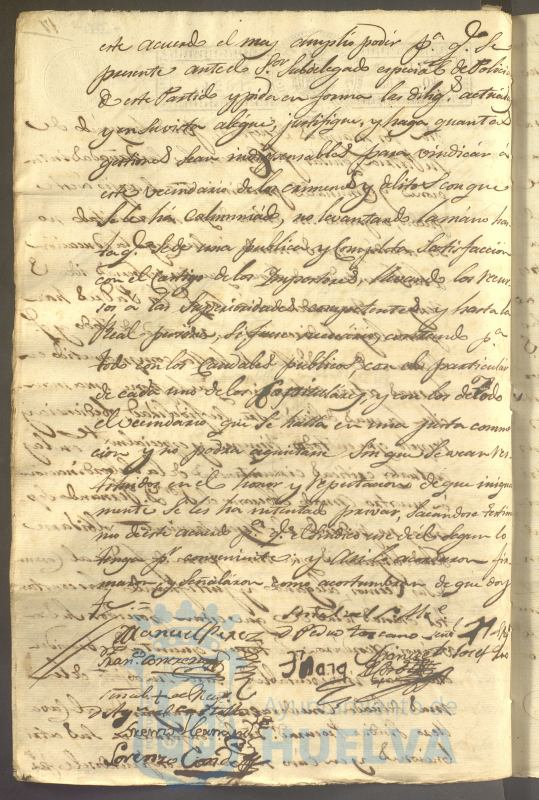 este acuerdo el mas amplio poder pª q.e Se
presente ante el S.or Subdelegado especial de Policia
de este Partido y pida en forma las dilig.s actuad
y en su vista alegue, justifique, y haga quantas
gestiones sean indispensables para vindicar á
este vecindario de los crimenes y delitos con que
se le há calumniado, no levantando la máno has
ta q.e se dé una publica, y completa Satisfaccion
con el Castigo de los Impostores, llevando los recur
sos á las Superioridades competentes y hasta la
Real persona, si fuere necesario, contando pª
todo con los caudales publicos con los particular
de cada uno de los Capitulares y con los de todo
el vecindario que se halla en una justa conmo
cion y no podrá aquietarse sin que se vean res
tituidos en el honor y reputacion de que iniqua
mente se les ha intentado privar, sacandose testimo
nio de este acuerdo pª q.e el Sindico use de el segun lo
tenga p.r conveniente; y asi lo acordaron fir
maron, y señalaron como acostumbran de que doy
fe.=
Manuel Perez
D. Pedro Toscano
Fran.co Contreras
Lorenzo Hernandez
Lorenzo Conde
Ayuntamiento de
HUELVA